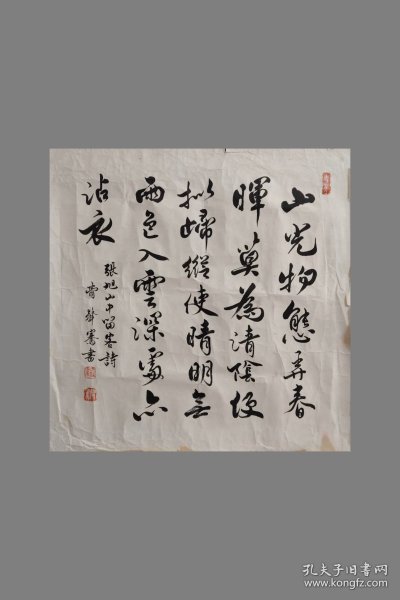 山光物態弄春
暉莫為清陰便
拟歸縱使晴明無
雨色入雲深處亦
沾衣
張旭山中留客詩
聲騫書
孔夫子旧书网
www.kongfz.com